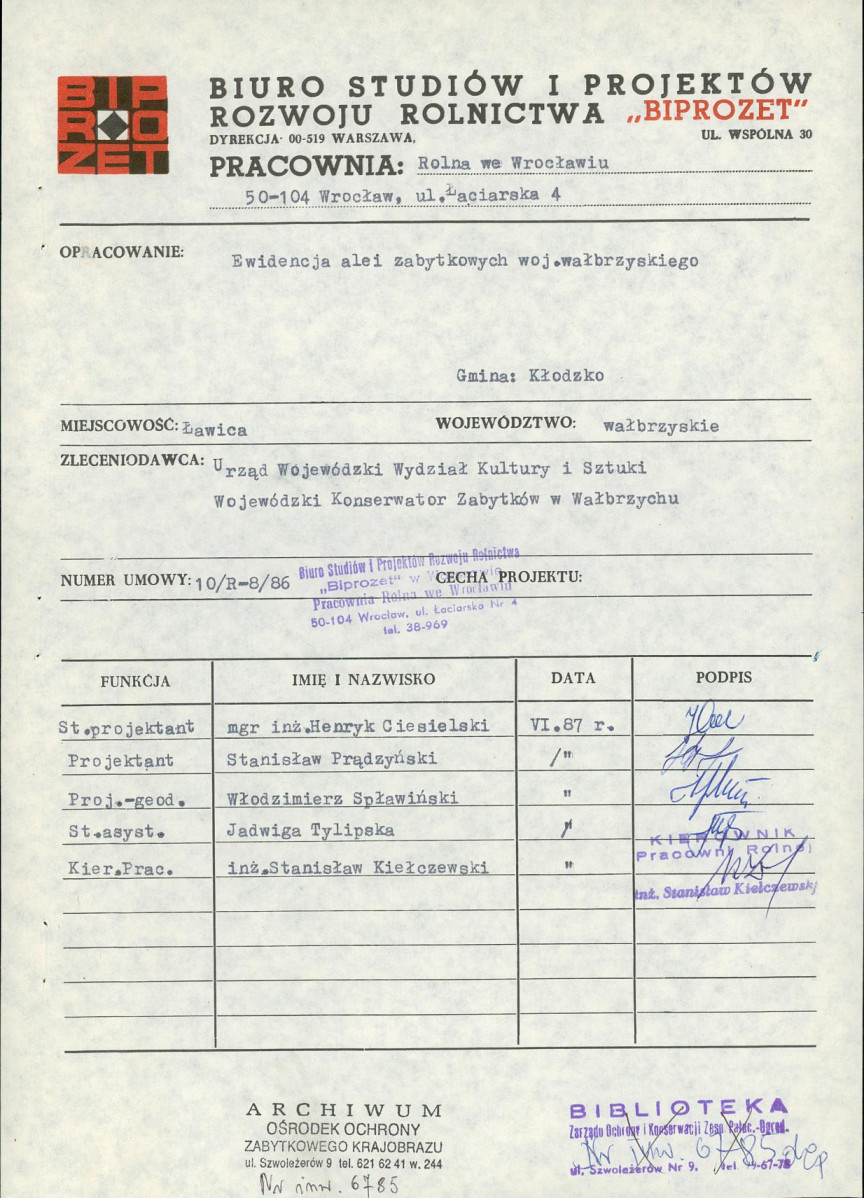 BIPROZET
BIURO STUDIÓW I PROJEKTÓW
ROZWOJU ROLNICTWA „BIPROZET"
DYREKCJA· 00-519 WARSZAWA, UL. WSPÓLNA 30
PRACOWNIA: Rolna we Wrocławiu
50-104 Wrocław, ul.Łaciarska 4
OPRACOWANIE: Ewidencja alei zabytkowych woj.wałbrzyskiego
Gmina: Kłodzko
MIEJSCOWOŚĆ: Ławica WOJEWÓDZTWO: wałbrzyskie
ZLECENIODAWCA: Urząd Wojewódzki Wydział Kultury i Sztuki
Wojewódzki Konserwator Zabytków w Wałbrzychu
NUMER UMOWY: 10/R-8/86 CECHA PROJEKTU:
Biuro Studiów i Projektów Rozwoju Rolnictwa
„Biprozet" w
Pracownia Rolna we Wrocławiu
50-104 Wrocław, ul. Łaciarska Nr 4
tel. 38-969
FUNKCJA IMIĘ I NAZWISKO DATA PODPIS
St.projektant mgr inż.Henryk Ciesielski VI.87 r.
Projektant Stanisław Prądzyński /"
Proj.-geod. Włodzimierz Spławiński "
St.asyst. Jadwiga Tylipska "
Kier.Prac. inż.Stanisław Kiełczewski "
KIEROWNIK
Pracowni Rolnej
inż. Stanisław Kiełczewski
ARCHIWUM
OŚRODEK OCHRONY
ZABYTKOWEGO KRAJOBRAZU
ul. Szwoleżerów 9 tel. 621 62 41 w. 244
Nr inw. 6785
BIBLIOTEKA
Zarządu Ochrony i Konserwacji Zesp. Pałac.-Ogrod.
Nr inw. 6785
ul. Szwoleżerów Nr 9. tel.